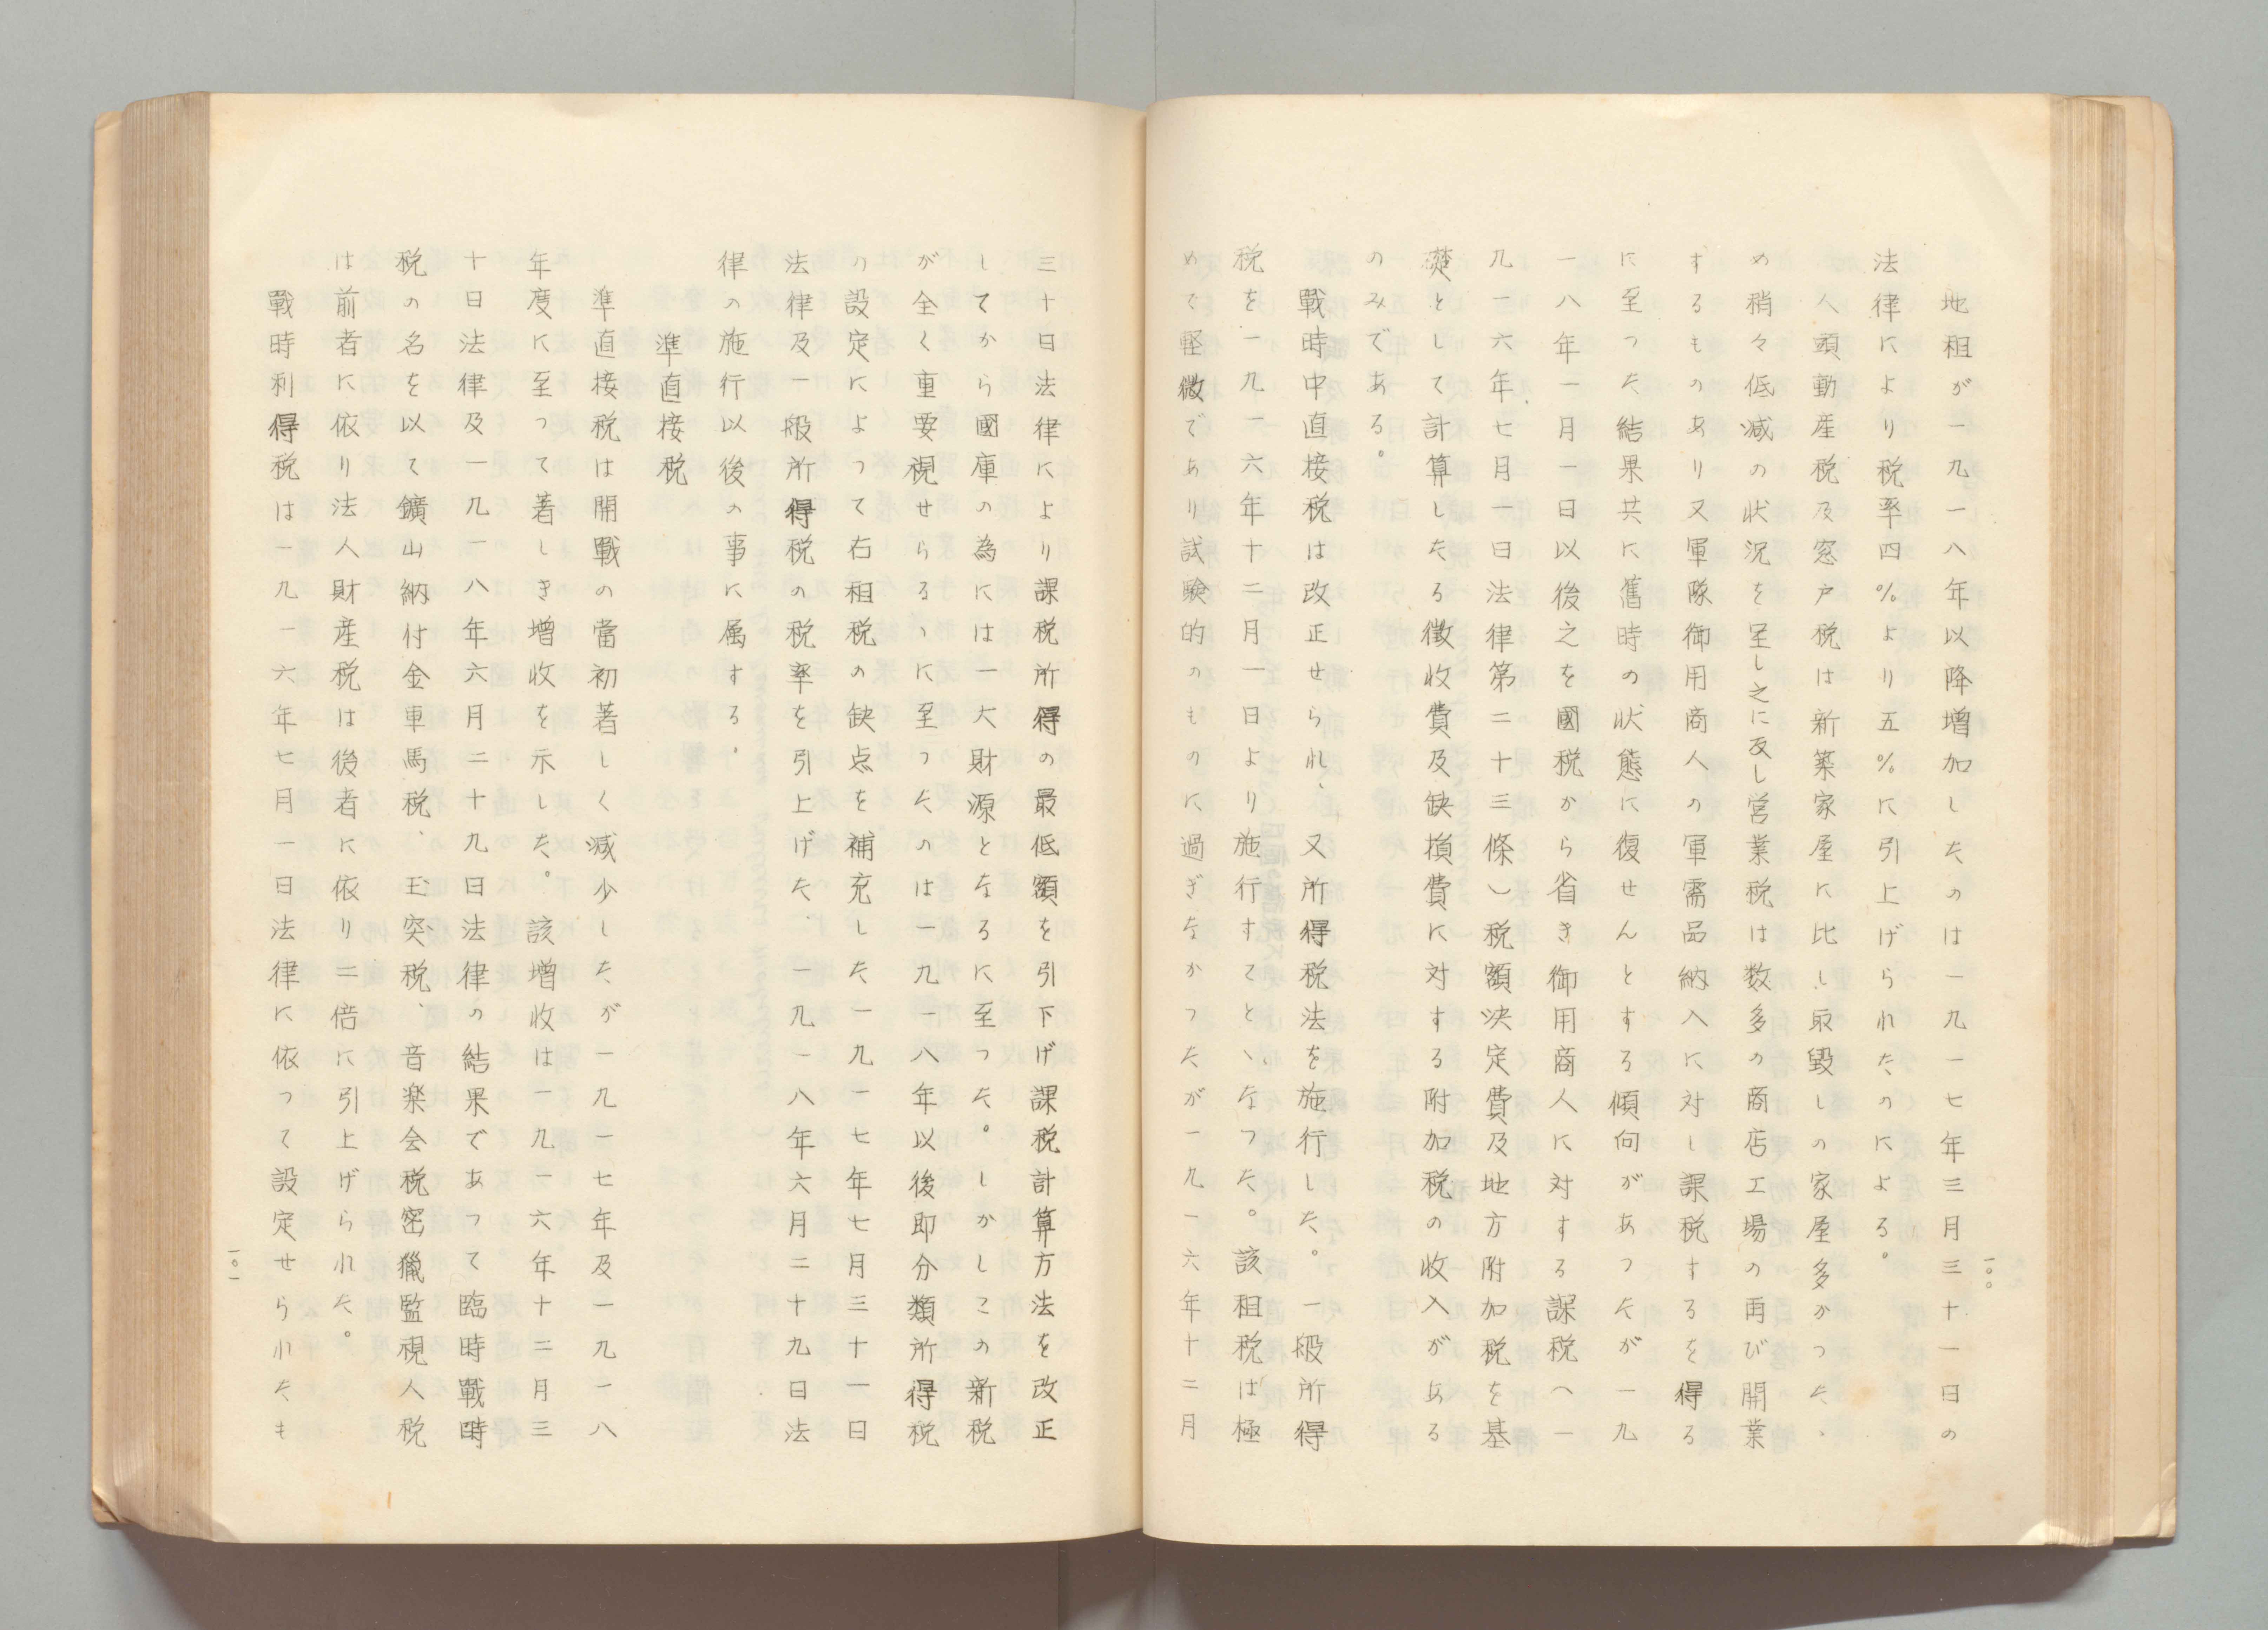 一〇〇
地租が一九一八年以降増加したのは一九一七年三月三十一日の
法律により税率四%より五%に引上げられたのによる。
人頭動産税及窓戸税は新築家屋に比し取毀しの家屋多かつた、
め稍々低減の状況を呈し之に反し営業税は数多の商店工場の再び開業
するものあり又軍隊御用商人の軍需品納入に対し課税するを得る
に至つた結果共に舊時の状態に復せんとする傾向があつたが一九
一八年一月一日以後之を國税から省き御用商人に対する課税(一
九一六年七月一日法律第二十三條)税額決定費及地方附加税を基
礎として計算したる徴収費及缺損費に対する附加税の收入がある
のみである。
戰時中直接税は改正せられ、又所得税法を施行した。一般所得
税を一九一六年十二月一日より施行すてとゝなつた。該租税は極
めて軽微であり試験的のものに過ぎなかつたが一九一六年十二月
三十日法律により課税所得の最低額を引下げ課税計算方法を改正
してから國庫の為には一大財源となるに至つた。しかしこの新税
が全く重要視せらるゝに至つたのは一九一八年以後即分類所得税
の設定によつて右租税の缺点を補充した一九一七年七月三十一日
法律及一般所得税の税率を引上げた、一九一八年六月二十九日法
律の施行以後の事に属する。
準直接税
準直接税は開戰の當初著しく減少したが一九一七年及一九一八
年度に至つて著しき増收を示した。該増收は一九一六年十二月三
十日法律及一九一八年六月二十九日法律の結果であつて臨時戰時
税の名を以て鑛山納付金車馬税、玉突税、音楽会税密獵監視人税
は前者に依り法人財産税は後者に依り二倍に引上げられた。
戰時利得税は一九一六年七月一日法律に依つて設定せられたも
一〇一